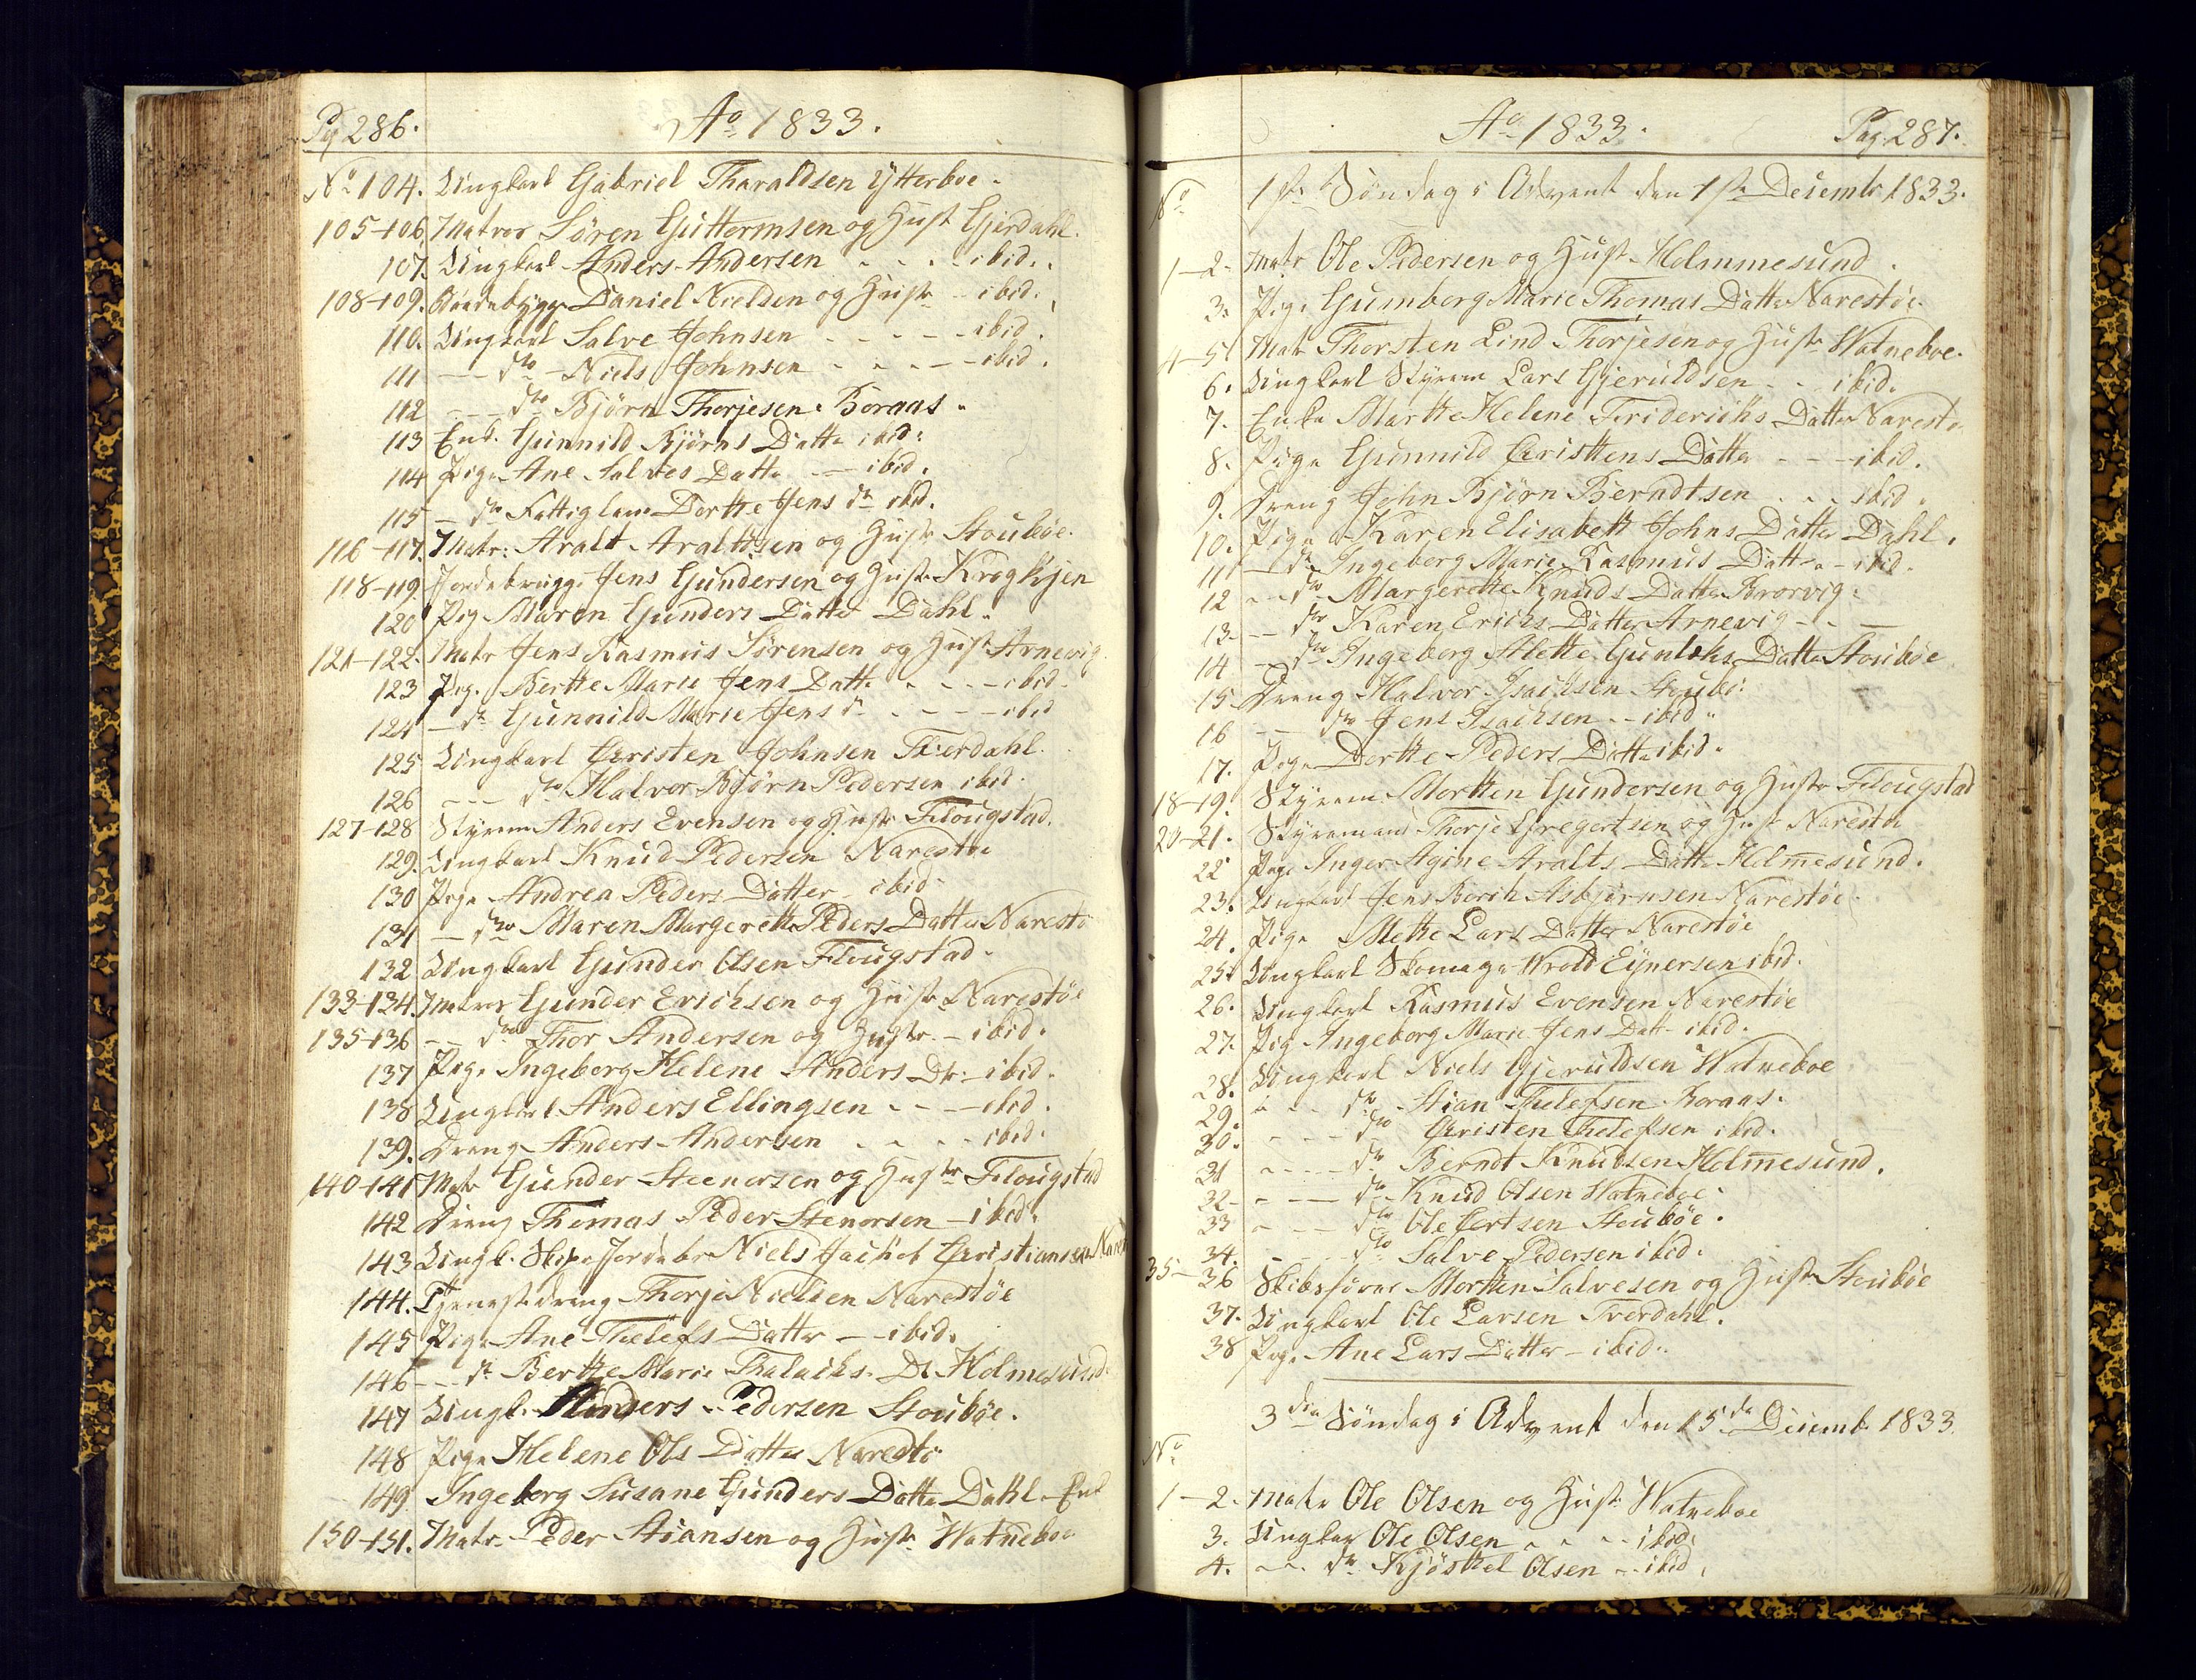 Pag 286. Ao 1833.
No 104. Ungkarl Gabriel Tharaldsen Ytterboe.
105-106. Matros Søren Guttormsen og Hust Gjerdahl.
107. Ungkarl Anders Andersen - - - ibid.
108-109. Daniel Nielsen og Hustr - ibid.
110. Ungkarl Salve Johnsen - - - - ibid.
111 - - do Niels Johnsen - - - - ibid.
112 - - - do Bjørn Thorjesen Boraas.
113 Enk. Gunnild Bjørns Datter ibid.
114 Pige Ane Salves Datter - - ibid.
115 - do Fattiglem Dorthe Jens dr ibid.
116-117. Matr: Aralt Araltsen og Hustr Stoubøe.
118-119 Jordebrugg. Jens Gundersen og Hustr Krogkjen
120 Pig Maren Gunders Datter Dahl.
121-122. Matr Jens Rasmus Sørensen og Hust Arnevig
123 Pige Berthe Marie Jens Datter - - - ibid.
124 - do Gunnild Marie Jens dr - - - - ibid
125 Ungkarl Christen Johnsen Tverdahl.
126 - - - do Halvor Bjørn Pedersen ibid.
127-128 Styrm Anders Evensen og Hustr Flougstad.
129. Ungkarl Knud Pedersen Narestøe
130 Pige Andrea Peders Datter - ibid.
131 - do Maren Margerethe Peders Datter Narestø
132 Ungkarl Gunder Olsen Flougstad.
133-134. Matros Gunder Erichsen og Hustr Narestøe
135-136 - - do Thor Andersen og Hustr. - ibid.
137 Pige Ingeborg Helene Anders Dtr. - ibid.
138 Ungkarl Anders Ellingsen - - - ibid.
139. Dreng Anders Andersen - - - - ibid.
140-141 Matr Gunder Steenersen og Hustr Flougstad
142 Dreng Thomas Peder Stenersen - ibid.
143 Ungk. Niels Jacob Christiansen
144. Tjenestedreng Thorje Nielsen Narestøe
145 Pige Ane Thelefs Datter - - ibid.
146 - - do Berthe Marie Dr Holmesund.
147 Ungk. Anders Pedersen Stoubøe.
148 Pige Helene Ols Datter Narestø
149 Ingeborg Susane Gunders Datter Dahl Enk
150-151. Matr. Peder Stiansen og Hustr Watneboe
Ao 1833. Pag 287.
No 1ste Søndag i Advent den 1ste Decembr 1833.
1-2. Matr Ole Pedersen og Hustr Holmmesund.
3. Pige Gumborg Marie Thomas Datter Narestøe.
4-5 Matr Thorsten Lind Thorjesen og Hustr Watneboe.
6. Ungkarl Styrm Lars Gjeruldsen - - ibid.
7. Enke Marthe Helene Friderichs Datter Narestø
8. Pige Gunnild Christens Datter - - - ibid.
9. Dreng John Bjørn Berndtsen - - - ibid.
10. Pige Karen Elisabeth Johns Datter Dahl.
11 - do Ingeborg Marie Rasmus Datter - ibid.
12 - - do Margerethe Knuds Datter Brorvig.
13. - - do Karen Erichs Datter Arnevig - - -
14 - do Ingeborg Mette Gunleks Datter Stoubøe
15 Dreng Halvor Isachsen Stoubø.
16 - - do Jens Isachsen - - ibid.
17. Pige Dorthe Peders Datter ibid.
18-19. Styrm. Morthen Gundersen og Hustr Flougstad
20-21. Styrmand Thorje Gregertsen og Hustr Narestøe
22 Pige Inger Agine Aralts Datter Holmesund.
23. Ungkarl Jens Berih Asbjørnsen Narestøe.
24. Pige Mette Lars Datter Narestøe
25. Ungkarl Skomager Wrold Eynersen ibid.
26. Ungkarl Rasmus Evensen Narestøe
27. Pig Ingeborg Marie Jens Datt ibid.
28. Ungkarl Niels Gjeruldsen Watneboe
29. - - - do Stian Thelefsen Boraas.
30. - - - do Christen Thelefsen ibid.
31 - - - - do Berndt Knudsen Holmesund.
32 - - - do Knud Olsen Watneboe.
33 - - - do Ole Certsen Stoubøe.
34. - - - do Salve Pedersen ibid.
35-36 Skibsfører Morthen Salvesen og Hustr Stoubøe
37. Ungkarl Ole Larsen Tverdahl.
38 Pige Ane Lars Datter - ibid.
3die Søndag i Advent den 15de Decemb 1833.
No
1-2. Matr Ole Olsen og Hustr Watneboe
3. Ungkar Ole Olsen - - - - ibid.
4. - - - do Kjøstel Olsen - - ibid.